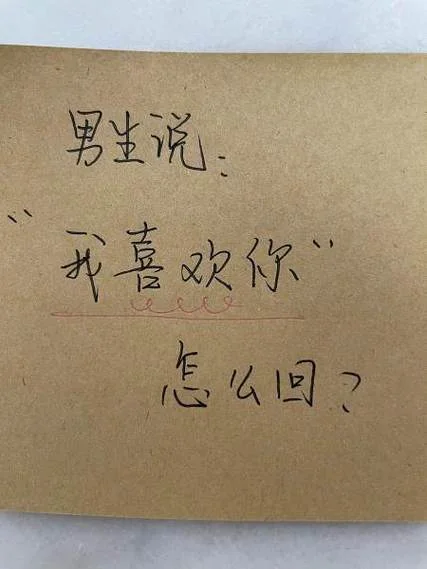 男生说：
“我喜欢你”
怎么回？